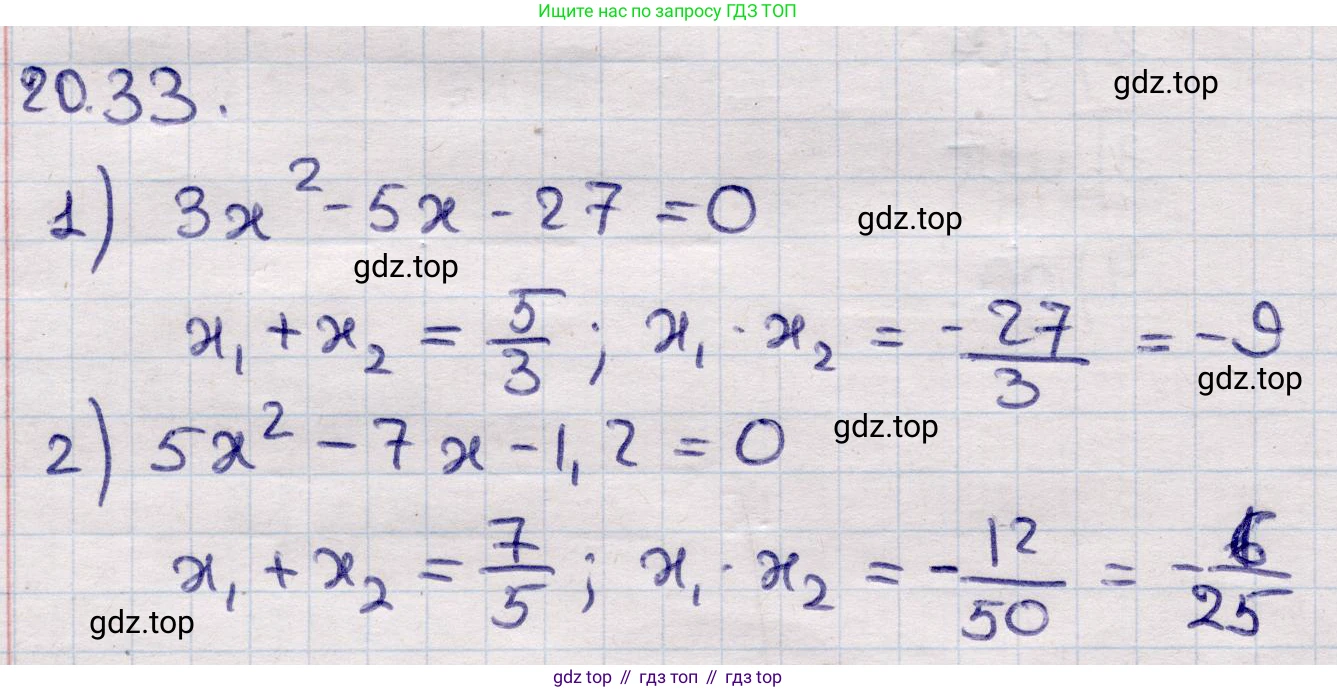 Ищите нас по запросу ГДЗ ТОП
20.33.
gdz.top
1) 3x² - 5x - 27 = 0
gdz.top
gdz.top
x₁ + x₂ = 5/3; x₁ · x₂ = -27/3 = -9
gdz.top
2) 5x² - 7x - 1,2 = 0
gdz.top
x₁ + x₂ = 7/5; x₁ · x₂ = -12/50 = -6/25
gdz.top
gdz top // гдз топ // gdz top